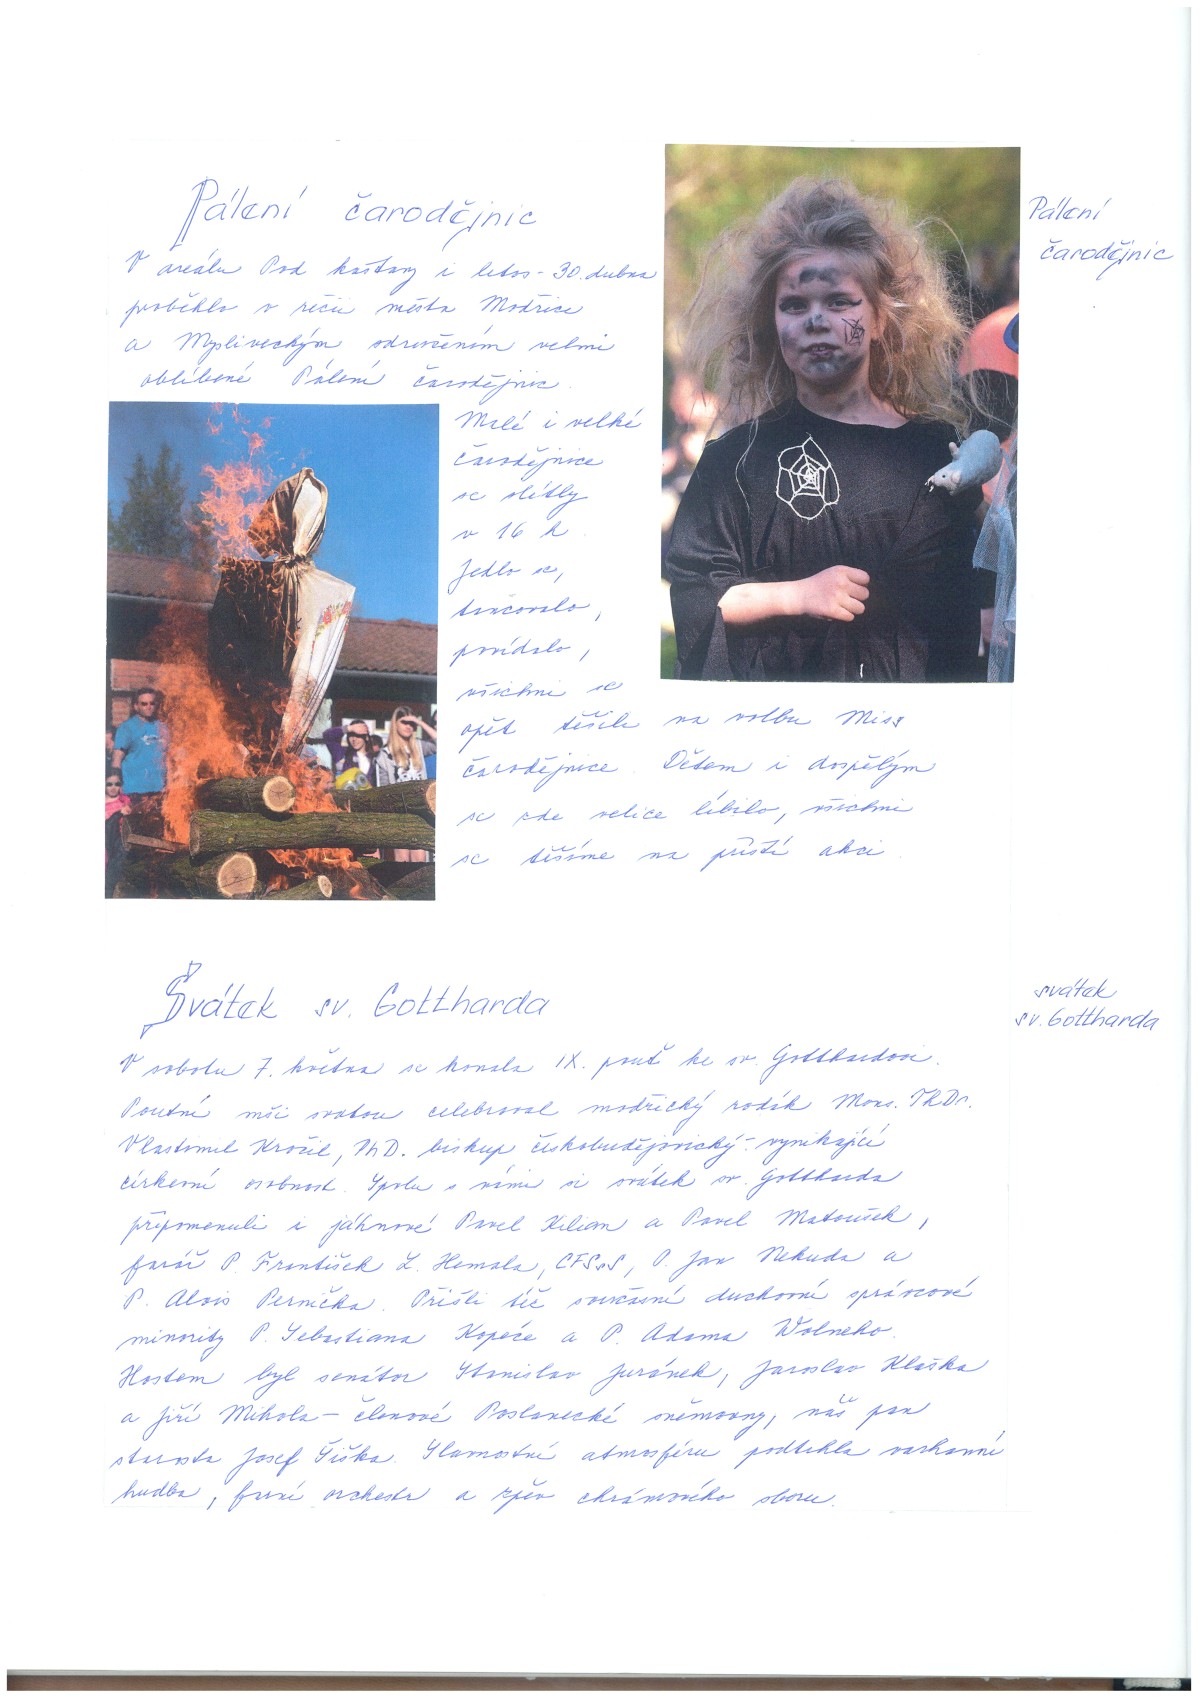 Pálení čarodějnic
Pálení
čarodějnic
V areálu Pod kaštany i letos - 30. dubna
proběhlo v režii města Modřice
a Mysliveckým sdružením velmi
oblíbené Pálení čarodějnic.
Malé i velké
čarodějnice
se slétly
v 16 h.
Jedlo se,
tancovalo,
povídalo,
všichni se
opět těšili na volbu Miss
čarodějnice. Dětem i dospělým
se zde velice líbilo, všichni
se těšíme na příští akci.
Svátek sv. Gottharda
svátek
sv. Gottharda
V sobotu 7. května se konala IX. pouť ke sv. Gotthardovi.
Poutní mši svatou celebroval modřický rodák Mons. ThDr.
Vlastimil Kročil, PhD. biskup českobudějovický - vynikající
církevní osobnost. Spolu s námi si svátek sv. Gottharda
připomenuli i jáhnové Pavel Kilian a Pavel Matoušek,
farář P. František L. Hemala, CFSsS, P. Jan Nekuda a
P. Alois Pernička. Přišli též současní duchovní správcové
minority P. Sebastiana Kopeće a P. Adama Wolneho.
Hostem byl senátor Stanislav Juránek, Jaroslav Klaška
a Jiří Mihola - členové Poslanecké sněmovny, náš pan
starosta Josef Šiška. Slavnostní atmosféru podtrhla varhanní
hudba, farní orchestr a zpěv chrámového sboru.